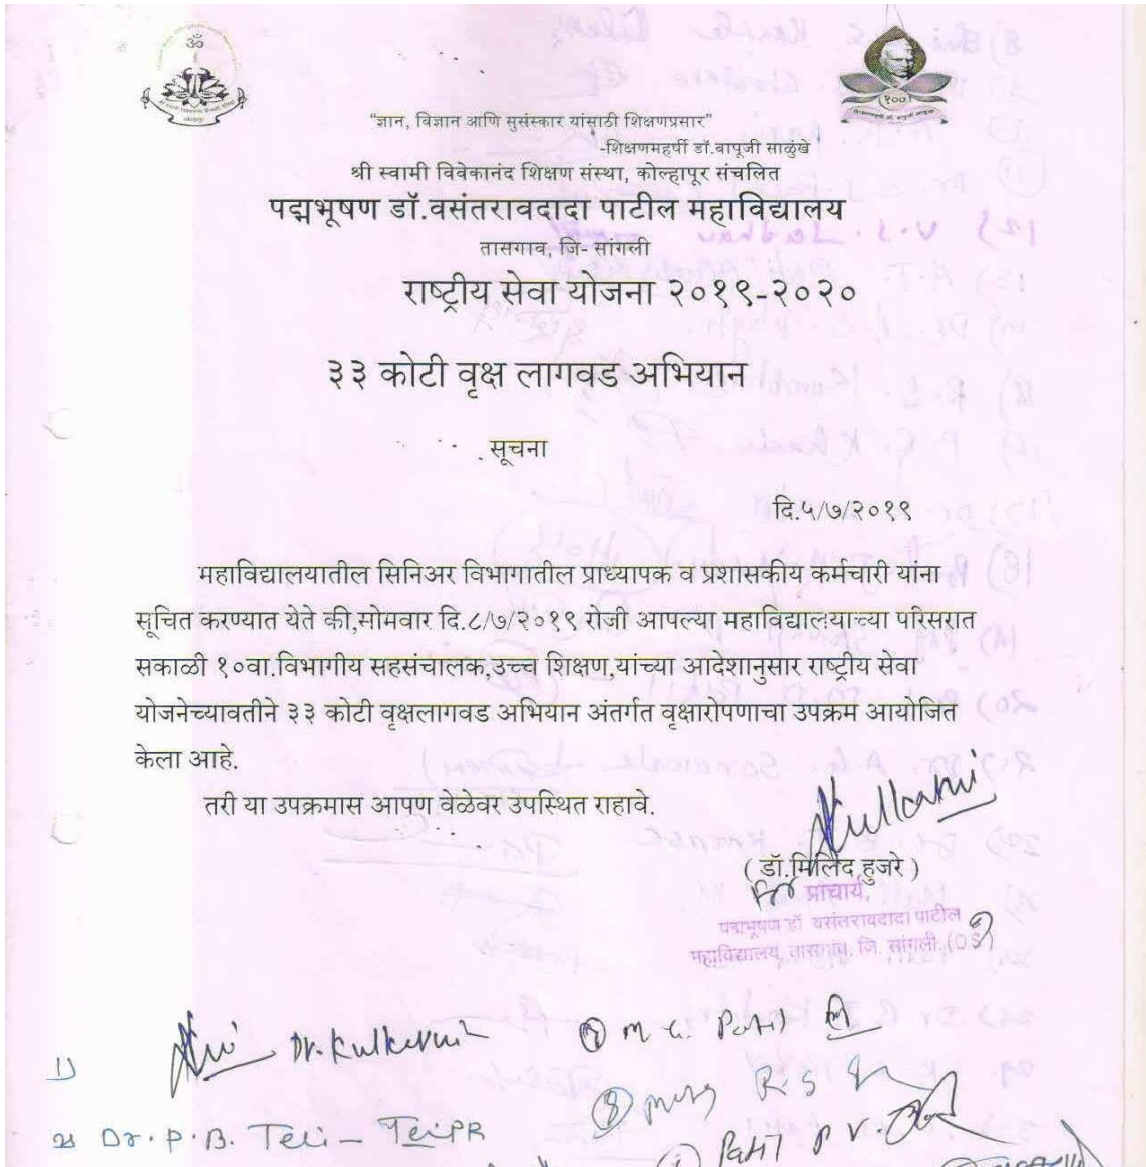 "ज्ञान, विज्ञान आणि सुसंस्कार यांसाठी शिक्षणप्रसार"
-शिक्षणमहर्षी डॉ.बापूजी साळुंखे
श्री स्वामी विवेकानंद शिक्षण संस्था, कोल्हापूर संचलित
पद्मभूषण डॉ.वसंतरावदादा पाटील महाविद्यालय
तासगाव, जि- सांगली
राष्ट्रीय सेवा योजना २०१९-२०२०
३३ कोटी वृक्ष लागवड अभियान
सूचना
दि.५/७/२०१९
महाविद्यालयातील सिनिअर विभागातील प्राध्यापक व प्रशासकीय कर्मचारी यांना
सूचित करण्यात येते की,सोमवार दि.८/७/२०१९ रोजी आपल्या महाविद्यालयाच्या परिसरात
सकाळी १०वा.विभागीय सहसंचालक,उच्च शिक्षण,यांच्या आदेशानुसार राष्ट्रीय सेवा
योजनेच्यावतीने ३३ कोटी वृक्षलागवड अभियान अंतर्गत वृक्षारोपणाचा उपक्रम आयोजित
केला आहे.
तरी या उपक्रमास आपण वेळेवर उपस्थित राहावे.
Kulkarni
( डॉ.मिलिंद हुजरे )
For प्राचार्य,
पद्मभूषण डॉ वसंतरावदादा पाटील
महाविद्यालय, तासगांव, जि. सांगली. (OS)
1) Dr. Kulkarni
M. C. Patil
2) Dr. P. B. Teli -
R S
Patil P V.